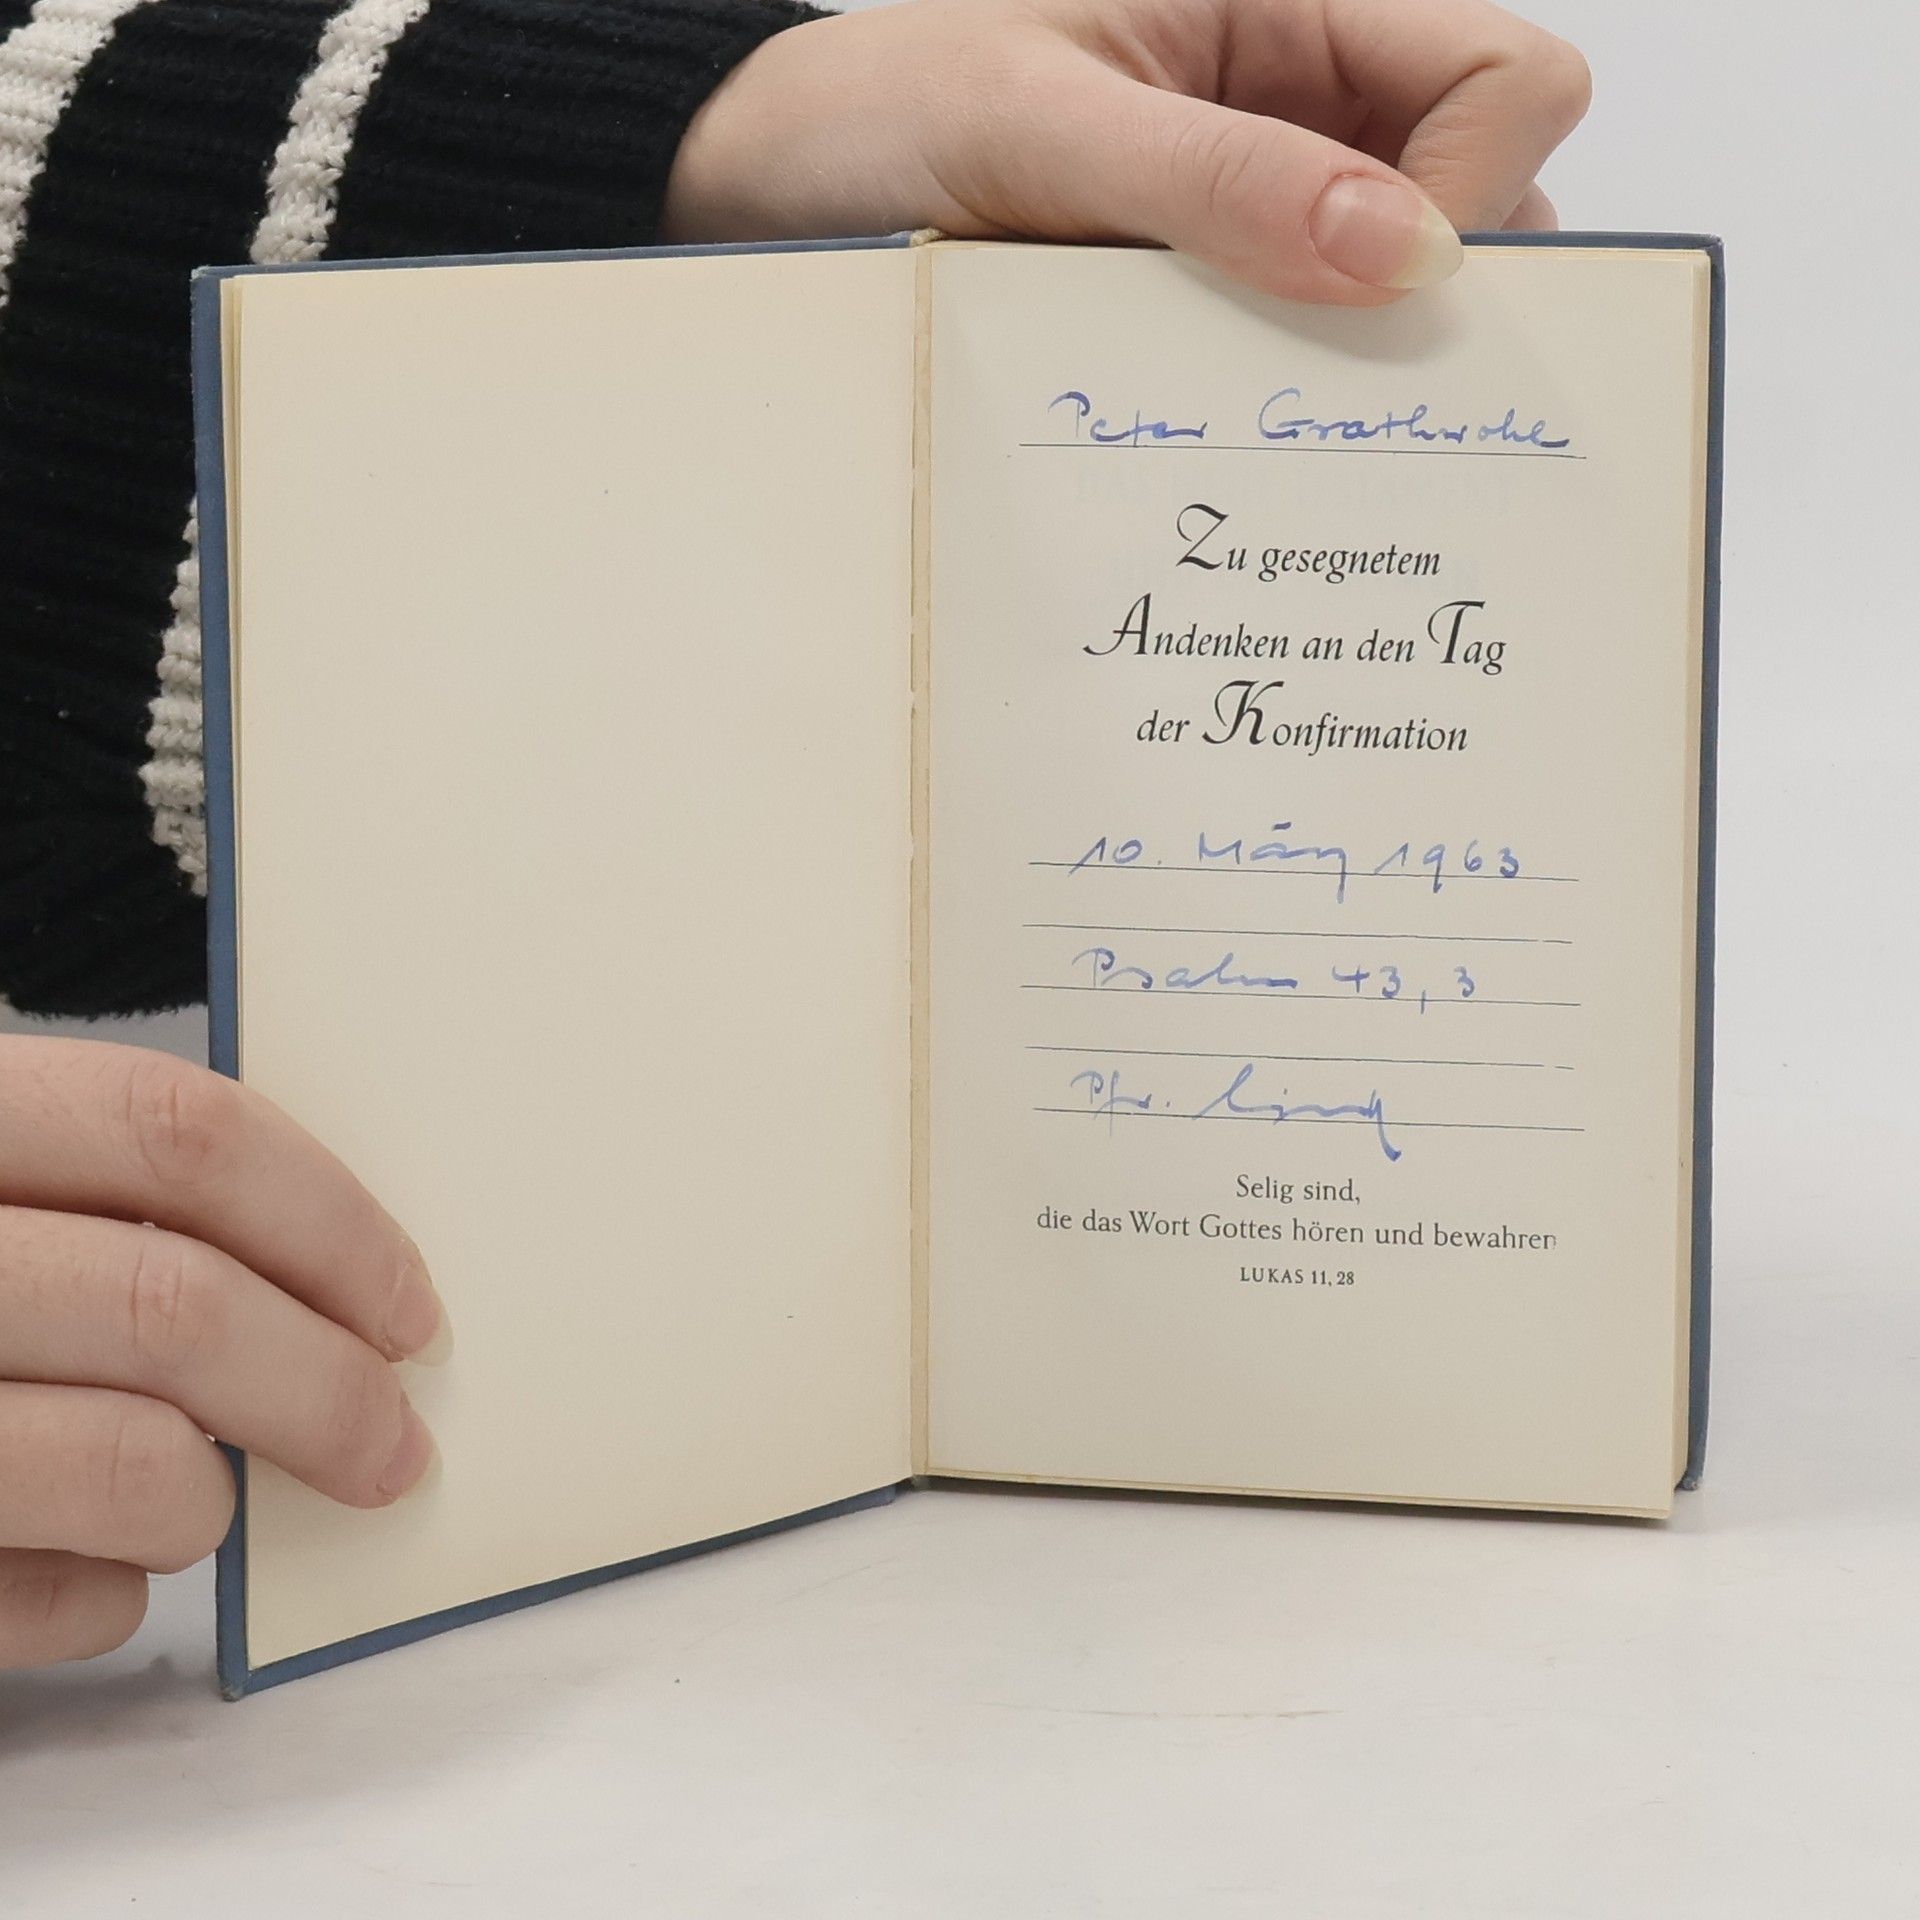 Peter Grathwohl
Zu gesegnetem
Andenken an den Tag
der Konfirmation
10. März 1963
Psalm 43, 3
Pfr.
Selig sind,
die das Wort Gottes hören und bewahren
LUKAS 11, 28